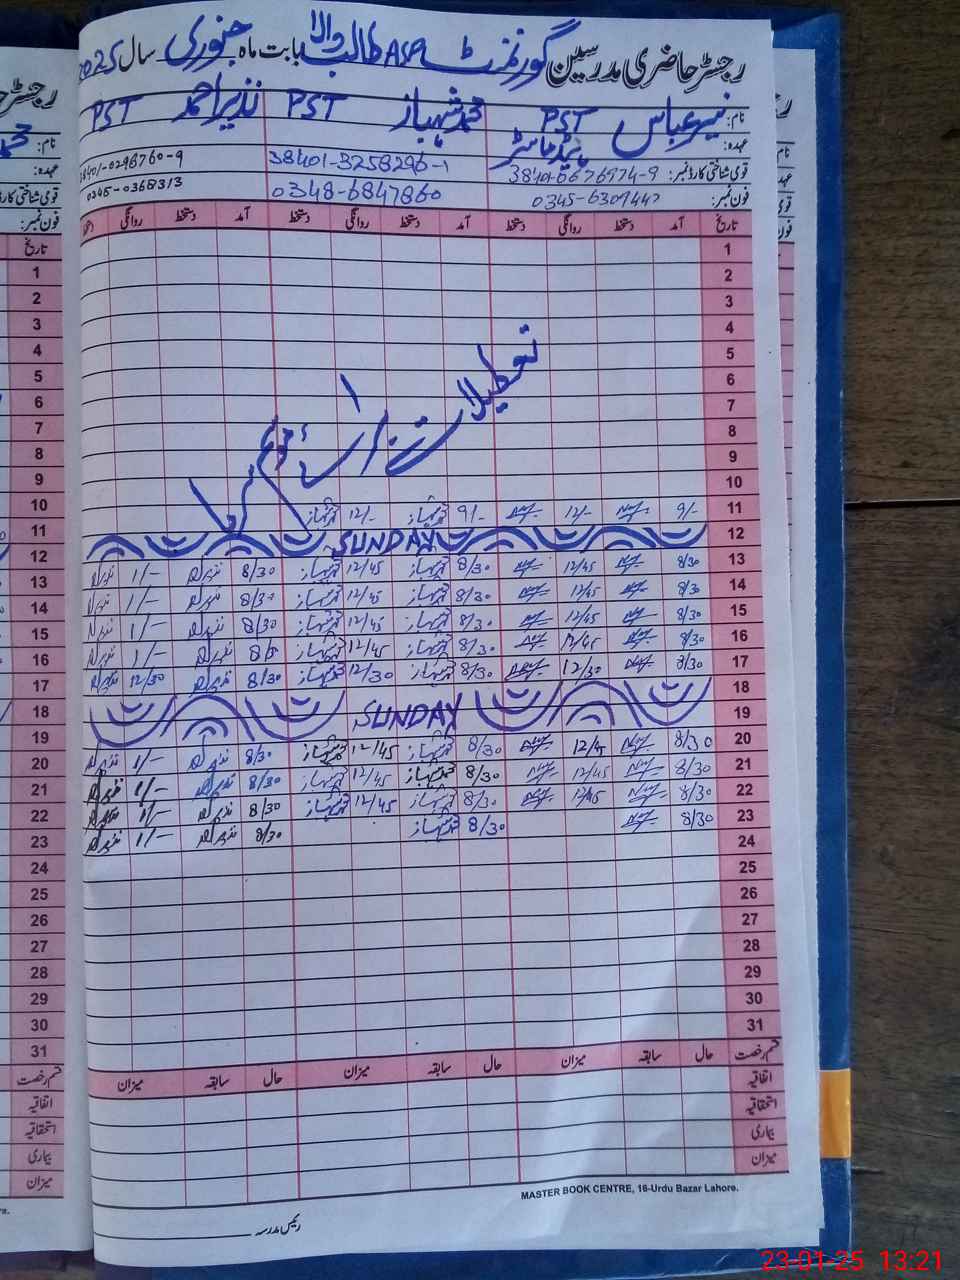 رجسٹر حاضری مدرسین گورنمنٹ ASP طالب والا بابت ماہ جنوری سال 2025
نام: نیئر عباس PST محمد شہباز PST نذیر احمد PST
عہدہ: ہیڈ ماسٹر
قومی شناختی کارڈ نمبر: 38401-6676974-9 38401-3258296-1 38401-0298760-9
فون نمبر: 0345-6309442 0348-6847860 0345-0368313
تاریخ آمد دستخط روانگی دستخط آمد دستخط روانگی دستخط آمد دستخط روانگی
1
2
3
4
5
6
7
8
9
10
تعطیلات برائے موسم سرما
11 9/- 12/- 9/- شہباز 12/- شہباز
12 SUNDAY
13 8/30 12/45 8/30 شہباز 12/45 شہباز 8/30 نذیر احمد 1/- نذیر احمد
14 8/30 12/45 8/30 شہباز 12/45 شہباز 8/30 نذیر احمد 1/- نذیر احمد
15 8/30 12/45 8/30 شہباز 12/45 شہباز 8/30 نذیر احمد 1/- نذیر احمد
16 8/30 12/45 8/30 شہباز 12/45 شہباز نذیر احمد 1/- نذیر احمد
17 8/30 12/30 8/30 شہباز 12/30 شہباز 8/30 نذیر احمد 12/30 نذیر احمد
18
19 SUNDAY
20 8/30 8/30 شہباز 12/45 شہباز 8/30 نذیر احمد 1/- نذیر احمد
21 8/30 12/45 8/30 شہباز 12/45 شہباز 8/30 نذیر احمد 1/- نذیر احمد
22 8/30 12/45 8/30 شہباز 12/45 شہباز 8/30 نذیر احمد 1/- نذیر احمد
23 8/30 8/30 شہباز 8/30 نذیر احمد 1/- نذیر احمد
24
25
26
27
28
29
30
31
قسم رخصت حال سابقہ میزان حال سابقہ میزان حال سابقہ میزان
اتفاقیہ
استحقاقیہ
بیماری
میزان
MASTER BOOK CENTRE, 16-Urdu Bazar Lahore.
رئیس مدرسہ
رجسٹر
نام:
عہدہ:
قومی شناختی کارڈ
فون نمبر:
تاریخ
1
2
3
4
5
6
7
8
9
10
11
12
13
14
15
16
17
18
19
20
21
22
23
24
25
26
27
28
29
30
31
قسم رخصت
اتفاقیہ
استحقاقیہ
بیماری
میزان
23-01-25 13:21